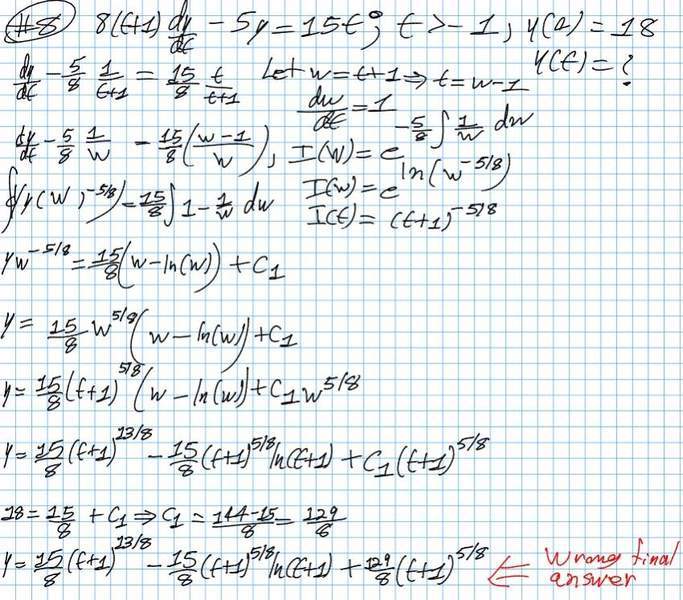 #8 8(t+1) dy/dt - 5y = 15t; t > -1, y(0) = 18
y(t) = ?
dy/dt - 5/8 1/(t+1) = 15/8 t/(t+1) Let w = t+1 ⇒ t = w-1
dw/dt = 1
dy/dt - 5/8 1/w - 15/8 ((w-1)/w), I(w) = e^(-5/8 ∫ 1/w dw)
I(w) = e^(ln(w^(-5/8)))
∫(y(w)^(-5/8)) = 15/8 ∫ 1 - 1/w dw I(t) = (t+1)^(-5/8)
yw^(-5/8) = 15/8 (w - ln(w)) + C1
y = 15/8 w^(5/8) (w - ln(w)) + C1
y = 15/8 (t+1)^(5/8) (w - ln(w)) + C1 w^(5/8)
y = 15/8 (t+1)^(13/8) - 15/8 (t+1)^(5/8) ln(t+1) + C1 (t+1)^(5/8)
18 = 15/8 + C1 ⇒ C1 = (144-15)/8 = 129/8
y = 15/8 (t+1)^(13/8) - 15/8 (t+1)^(5/8) ln(t+1) + 129/8 (t+1)^(5/8) ⇐ Wrong final
answer